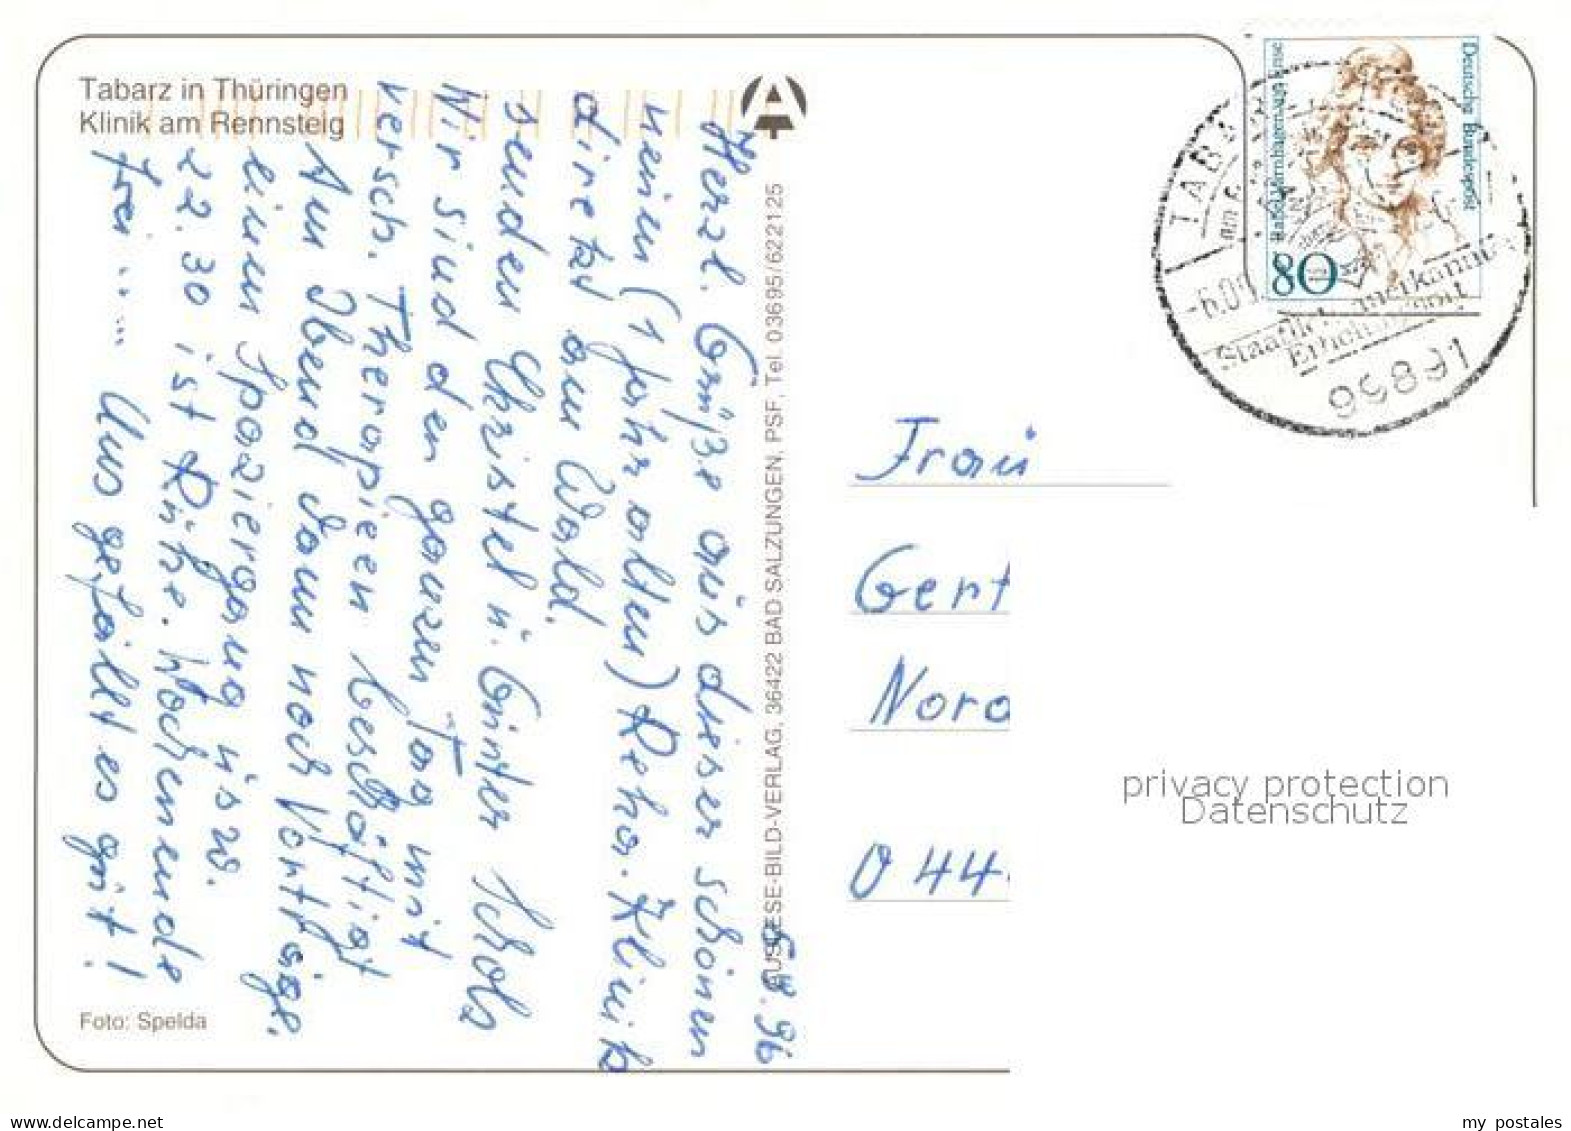 Tabarz in Thüringen
Klinik am Rennsteig
6.8.96
Herzl. Grüße aus dieser schönen
neuen (1 Jahr alten) Reha.Klinik
direkt am Wald.
senden Christel u. Günter Schols
Wir sind den ganzen Tag mit
versch. Therapieen beschäftigt
Am Abend dann noch Vorträge,
einen Spaziergang usw.
22.30 ist Ruhe. Wochenende
frei ..... Uns gefällt es gut!
AUSLESE-BILD-VERLAG, 36422 BAD SALZUNGEN, PSF, Tel. 03695/622125
Foto: Spelda
Deutsche Bundespost
Rahel Varnhagen von Ense
80
TABARZ
Staatlich anerkannter
Erholungsort
99891
Frau
Gert
Nord
0 44
privacy protection
Datenschutz
my postales